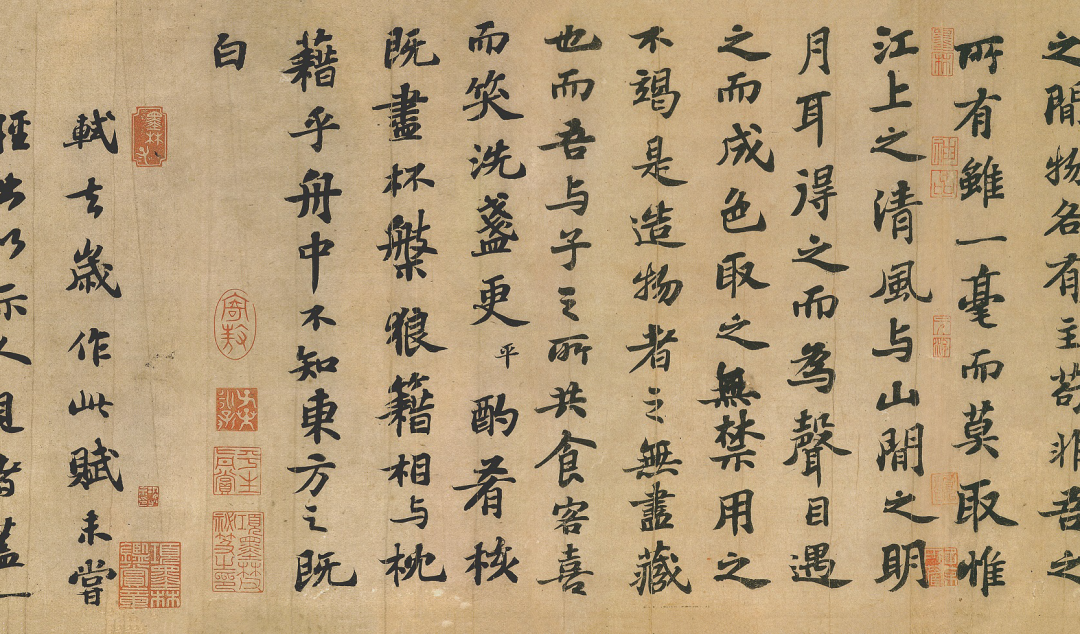 之間物各有主苟非吾之
所有雖一毫而莫取惟
江上之清風与山間之明
月耳得之而為聲目遇
之而成色取之無禁用之
不竭是造物者之無盡藏
也而吾与子之所共食客喜
而笑洗盞更平酌肴核
既盡杯槃狼籍相与枕
藉乎舟中不知東方之既
白
寄敖
平生真賞
項墨林父祕笈之印
軾去歲作此賦未嘗
輕出以示人見者盖一